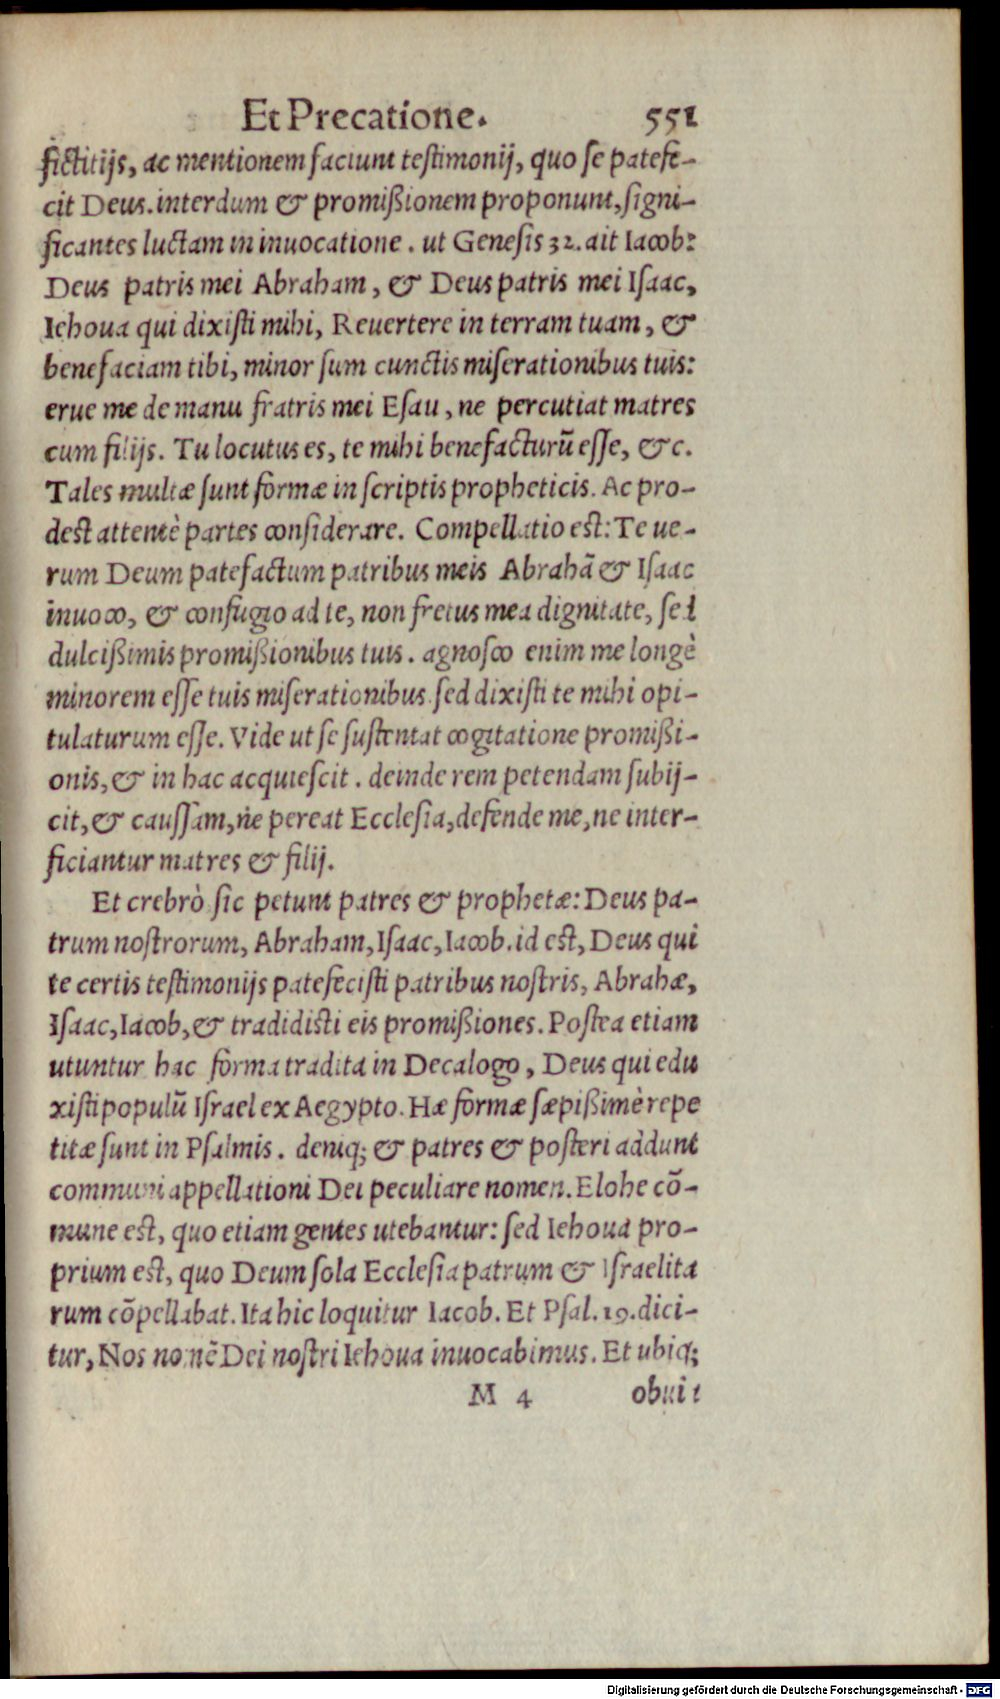 Et Precatione. 551
fictitijs, ac mentionem faciunt testimonij, quo se patefe-
cit Deus. interdum & promißionem proponunt, signi-
ficantes luctam in inuocatione. ut Genesis 32. ait Iacob:
Deus patris mei Abraham, & Deus patris mei Isaac,
Iehoua qui dixisti mihi, Reuertere in terram tuam, &
benefaciam tibi, minor sum cunctis miserationibus tuis:
erue me de manu fratris mei Esau, ne percutiat matres
cum filijs. Tu locutus es, te mihi benefacturũ esse, &c.
Tales multæ sunt formæ in scriptis propheticis. Ac pro-
dest attentè partes considerare. Compellatio est: Te ue-
rum Deum patefactum patribus meis Abrahã & Isaac
inuoco, & confugio ad te, non fretus mea dignitate, sed
dulcißimis promißionibus tuis. agnosco enim me longè
minorem esse tuis miserationibus. sed dixisti te mihi opi-
tulaturum esse. Vide ut se sustentat cogitatione promißi-
onis, & in hac acquiescit. deinde rem petendam subij-
cit, & caussam, ne pereat Ecclesia, defende me, ne inter-
ficiantur matres & filij.
Et crebrò sic petunt patres & prophetæ: Deus pa-
trum nostrorum, Abraham, Isaac, Iacob. id est, Deus qui
te certis testimonijs patefecisti patribus nostris, Abrahæ,
Isaac, Iacob, & tradidisti eis promißiones. Postea etiam
utuntur hac forma tradita in Decalogo, Deus qui edu
xisti populũ Israel ex Aegypto. Hæ formæ sæpißimè repe
titæ sunt in Psalmis. deniq; & patres & posteri addunt
communi appellationi Dei peculiare nomen. Elohe cõ-
mune est, quo etiam gentes utebantur: sed Iehoua pro-
prium est, quo Deum sola Ecclesia patrum & Israelita
rum cõpellabat. Ita hic loquitur Iacob. Et Psal. 19. dici-
tur, Nos nomẽ Dei nostri Iehoua inuocabimus. Et ubiq;
M 4 obuia
Digitalisierung gefördert durch die Deutsche Forschungsgemeinschaft - DFG